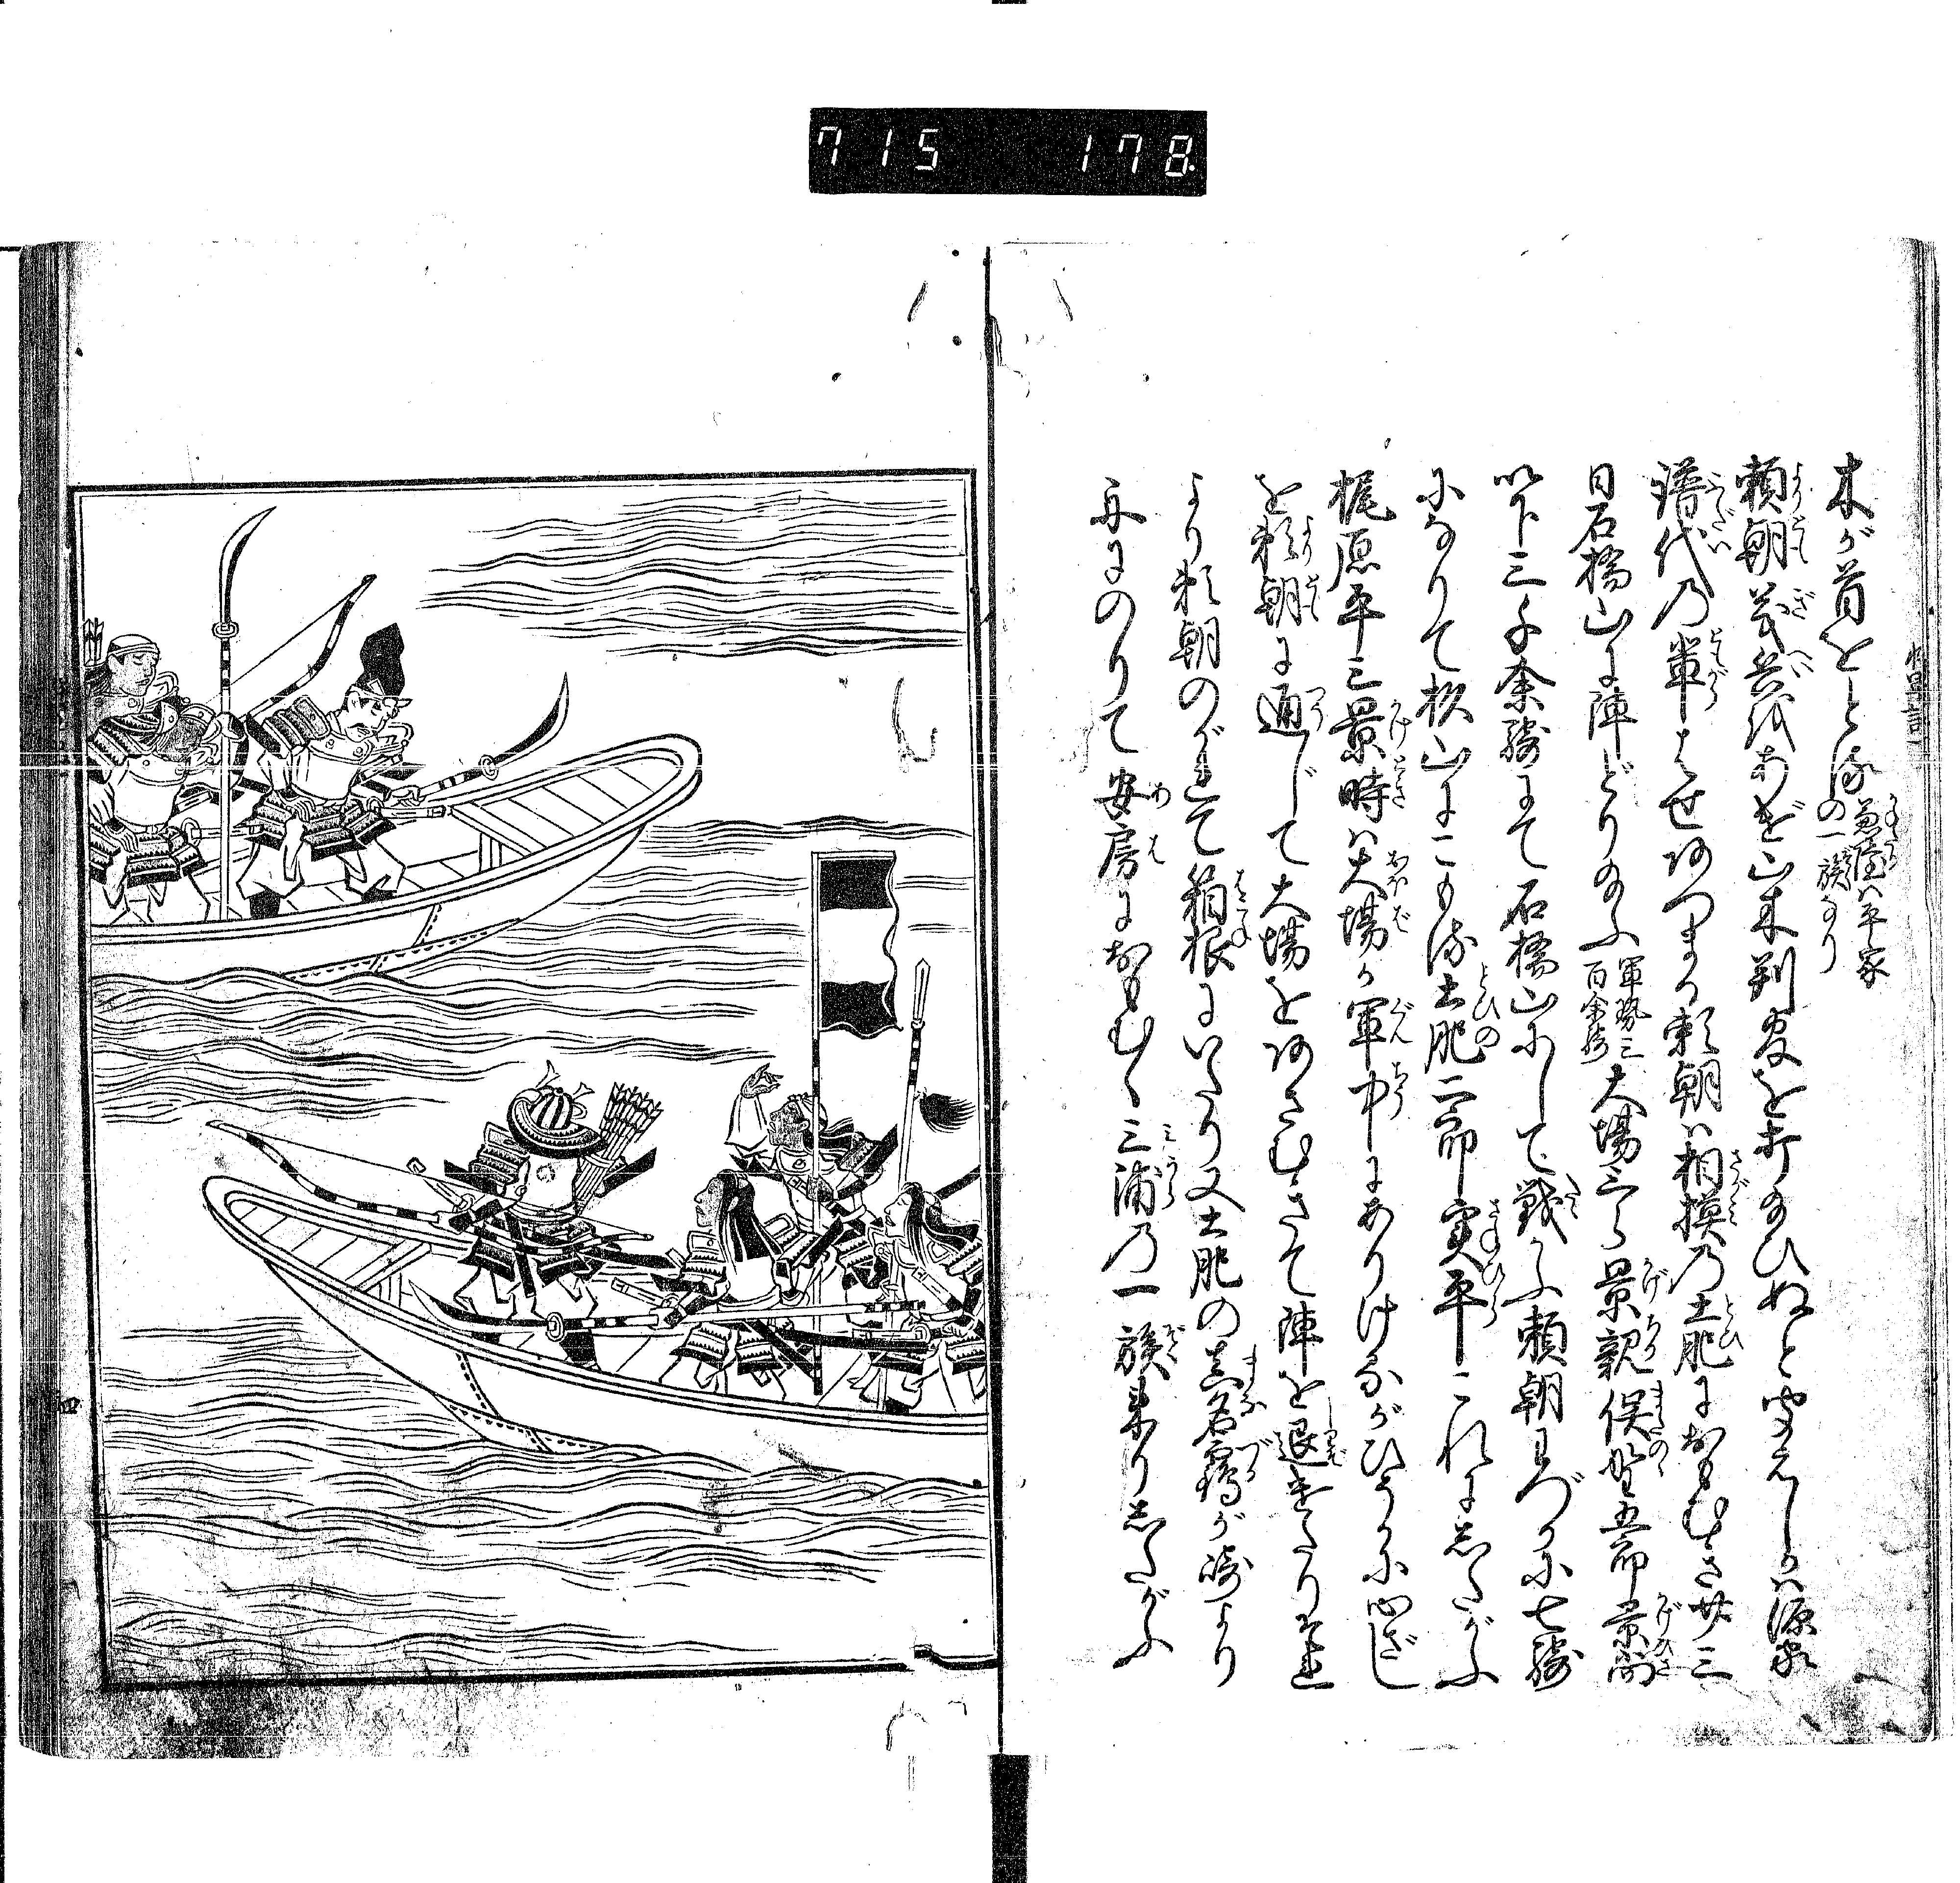 715 178
木が首をとる兼隆ハ平家の一族なり
頼朝義兵絋あげ山木判官を打給ひぬと聞えしかハ源家
譜代乃輩はせあつまる頼朝ハ相摸乃土肥におもむき廿三
日石橋山に陣どり給ふ軍勢三百余騎大場三郎景親俣野五郎景尚
以下三千余騎にて石橋山にして戦ふ頼朝わづかに七騎
になりて杉山にこもる土肥二郎実平これにしたがふ
梶原平三景時ハ大場が軍中にありけるがひそかに心ざし
を頼朝に通じて大場をあざむきて陣を退けたりそれ
より頼朝のがれて箱根にいたり又土肥の真名鶴が崎より
舟にのりて安房におもむく三浦乃一族来りしたがふ